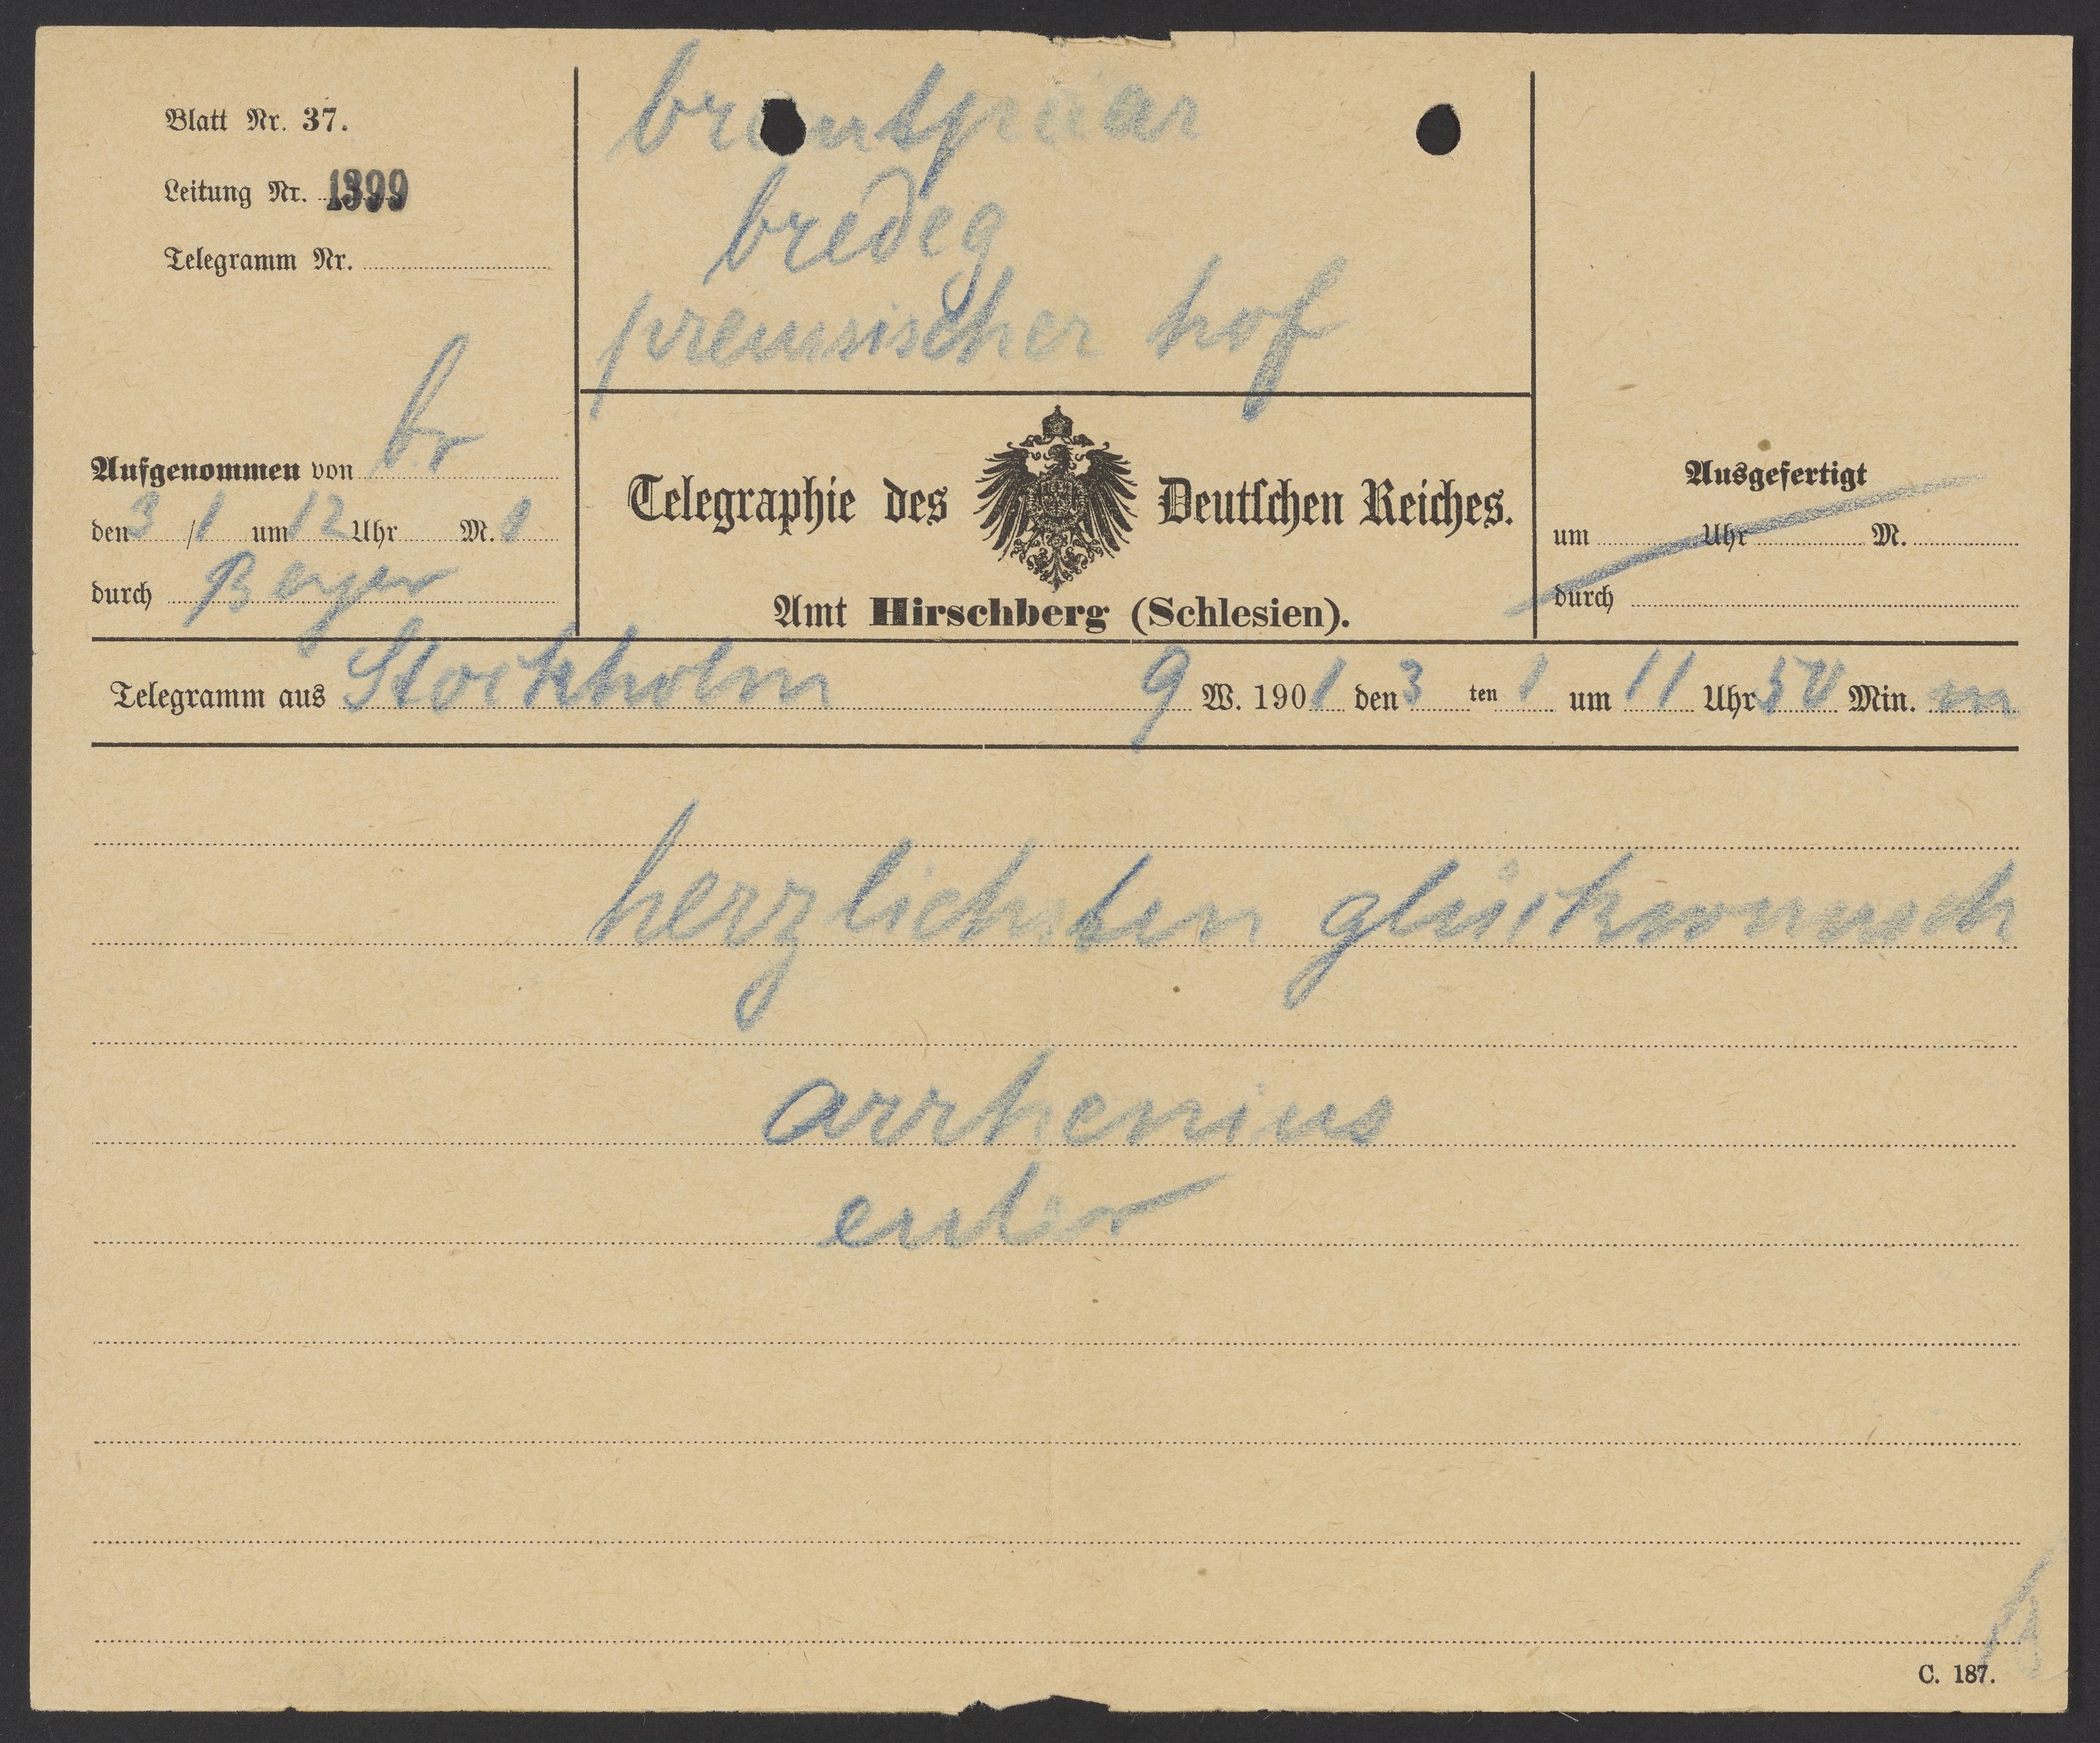 Blatt Nr. 37.
Leitung Nr. 1399
Telegramm Nr.
brautpaar
bredeg
preussischer hof
Aufgenommen von br
den 3/1 um 12 Uhr M.
durch
Telegraphie des Deutschen Reiches.
Amt Hirschberg (Schlesien).
Ausgefertigt
um Uhr M.
durch
Telegramm aus Stockholm 9 W. 1901 den 3 ten 1 um 11 Uhr 50 Min. m
herzlichsten glückwunsch
arrhenius
euler
C. 187.